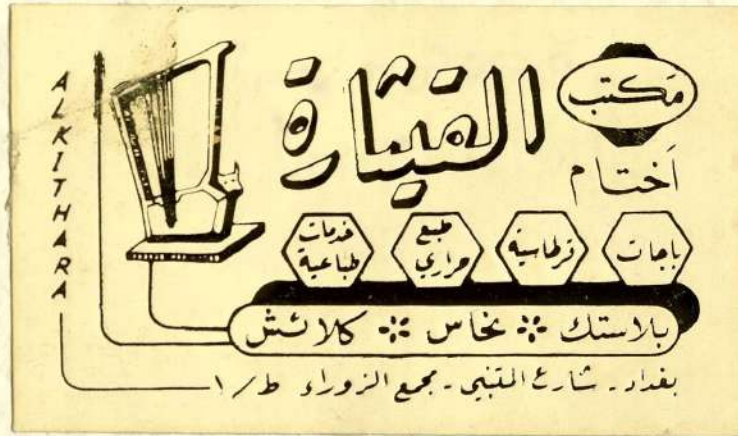 مكتب
القيثارة
أختام
باجات
قرطاسية
طبع حراري
خدمات طباعية
بلاستك * نحاس * كلائش
بغداد - شارع المتنبي - مجمع الزوراء ط/١
ALKITHARA